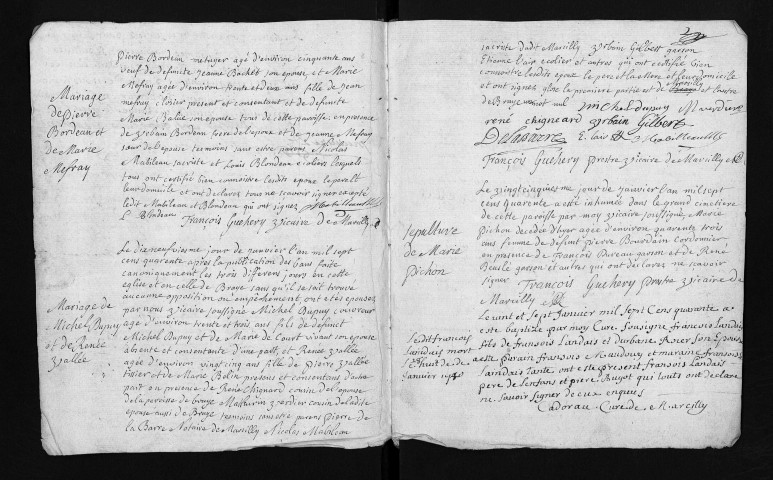 Mariage
de pierre
Bordeau et
de Marie
Mefray
pierre Bordeau metayer agé d'environ cinquante ans
veuf de deffunte jeanne Bachet son epouse, et Marie
Mefray agée d'environ trente et deux ans fille de jean
mefray, closier present et consentant et de defunte
Marie Balie son epouse tous de cette paroisse, en presence
de urbain frere de l'epoux et de jeanne Mefray
sœur de l'epouse temoins sans estre parens Nicolas
Mabileau sacriste et louis Blondeau ecoliers lesquels
tous ont certifié bien connoistre lesdits epoux le pere la
leur domicile et ont declaré tous ne scavoir signer excepté
ledit Mabileau et Blondeau qui ont signez Mabilleau
L Blondeau François Guehery vicaire de Marcilly
Mariage de
Michel Dupuy
et de Renée
vallée
Le dixneufvieme jour de janvier l'an mil sept
cens quarente apres la publication des bans faite
canoniquement les trois differens jours en cette
eglise et en celle de Braye sans qu'il se soit trouvé
aucunne opposition ou empêchement ont etes epousez
par nous vicaire soussigne Michel Dupuy couvreur
agé d'environ trente et trois ans fils de defunct
Michel Dupuy et de Marie de Court vivant son epouse
absente et consentante d'une part, et Renée vallée
agée d'environ vingt cinq ans fille de Pierre vallée
et de Marie Belin presens et consentans d'autre
part en presence de René Chignard cousin de l'epouse
de la paroisse de braye Mathurin verdier cousin de ladite
epouse aussi de Braye temoins sans estre parens Pierre de
la Barre Notaire de Marsilly Nicolas Mabileau
sacriste dudit Marsilly urbain Gilbert garson
Etienne lair ecolier et autres qui ont certifié bien
connoistre lesdits epoux le pere et la mere et leur domicile
et ont signes glose la premiere partie et de Marsilly et l'autre
de Braye michel dupuy M verdier
rené chigneard urbain Gilbert
Delabarre E. lair N Mabilleau
François Guehery prestre vicaire de Marsilly
sepulture
de Marie
pichon
Le vingt cinquieme jour de janvier l'an mil sept
cens quarente a esté inhumée dans le grand cimetiere
de cette paroisse par moy vicaire soussigné, Marie
Pichon decedée d'hyer agée d'environ quarente trois
ans femme de defunt pierre Bourdain cordonnier
en presence de François Pureau garson et de René
Beusle garson et autres qui ont declarez ne scavoir
signer François Guehery prestre vicaire de
Marsilly
ledit francois
landais mort
le huit de
janvier 1740
Le vint et sept Janvier mil sept Cens quarante a
este batisée par moy Cure soussigne francois landais
fils de francois landais et durbane Roier son Epouse
a este parain francois Mauduay et maraine francoise
landais tante, ont este present francois landais
pere de lenfans et piere Rugot qui touts ont declare
ne savoir signer de ceux enquis
Cadorau Cure de Marcilly